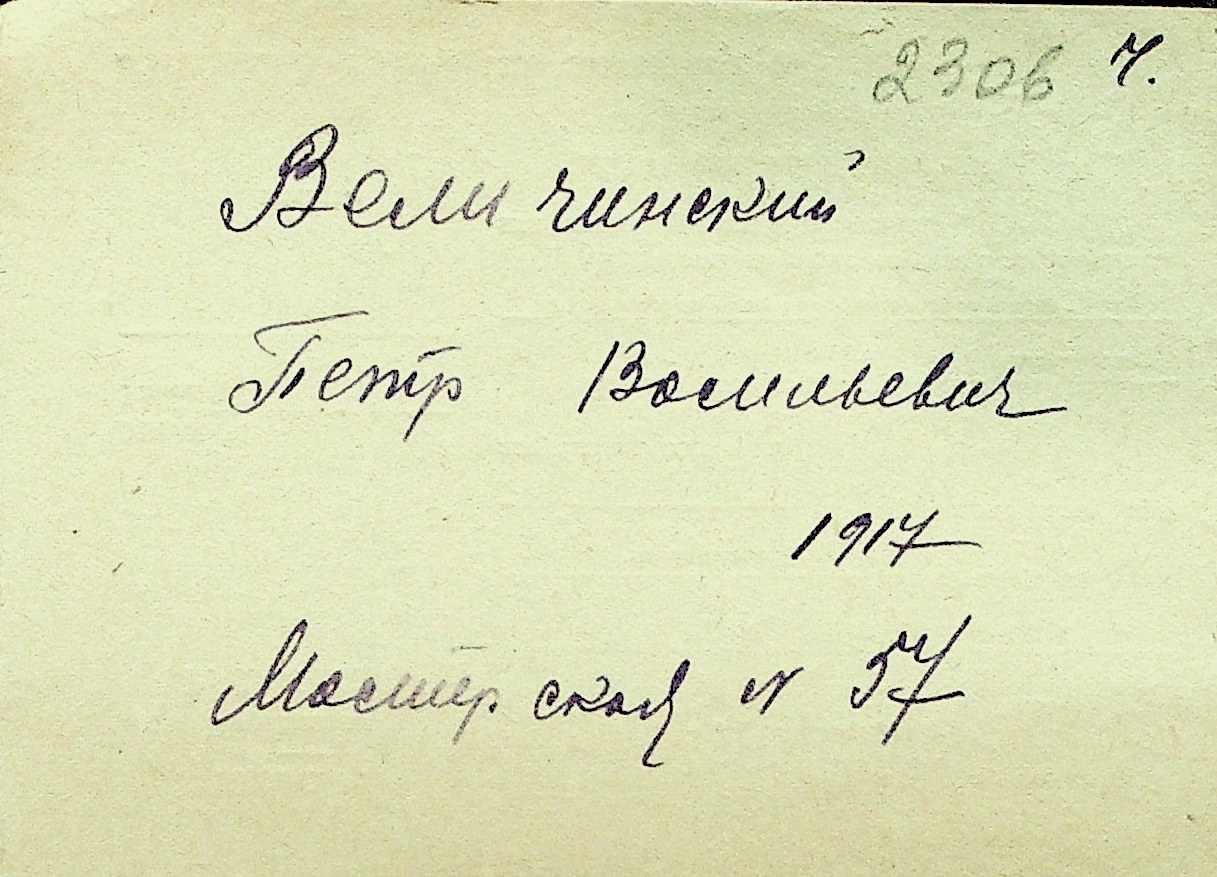 2306 ч.
Величинский
Петр Васильевич
1917
Мастерская N 57